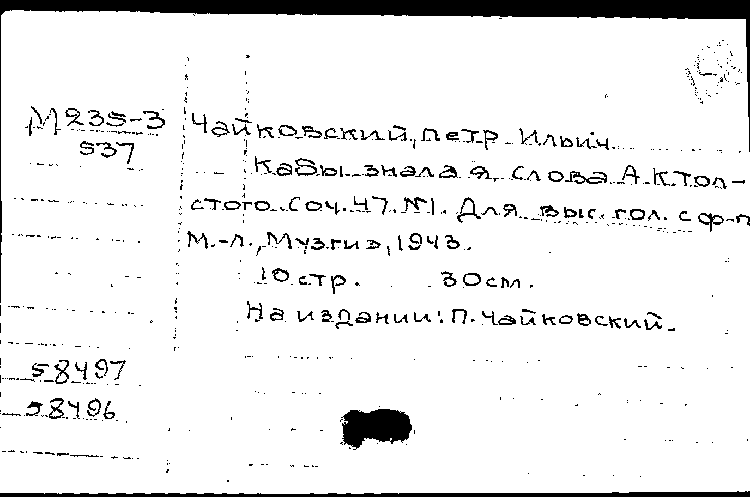 М 235-3
537
Чайковский, Петр Ильич.
Кабы знала я, слова А.К.Тол-
стого. Соч.47.№1. Для выс. гол. с ф-п
М.-Л., Музгиз, 1943.
10 стр. 30см.
На издании: П.Чайковский.
58497
58496